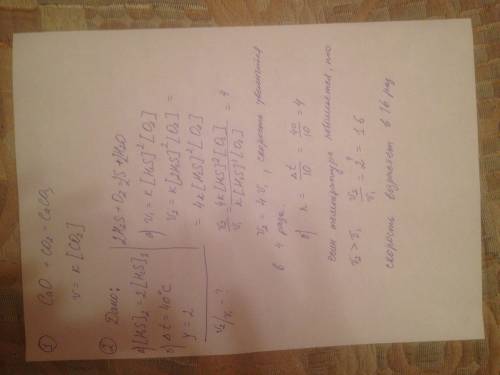 ① CaO + CO₂ = CaCO₃
v = к [CO₂]
② Дано:
а) [H₂S]₂ = 2 [H₂S]₁
б) Δt = 40°C
γ = 2
v₂/v₁ - ?
2H₂S + O₂ = 2S + 2H₂O
а) v₁ = к [H₂S]² [O₂]
v₂ = к [2H₂S]² [O₂] =
= 4к [H₂S]² [O₂]
v₂/v₁ = 4к [H₂S]² [O₂] / к [H₂S]² [O₂] = 4
v₂ = 4v₁, скорость увеличится
в 4 раза.
б) n = Δt/10 = 40/10 = 4
если температура повышается, то
v₂ > v₁ v₂/v₁ = 2⁴ = 16
скорость возрастет в 16 раз